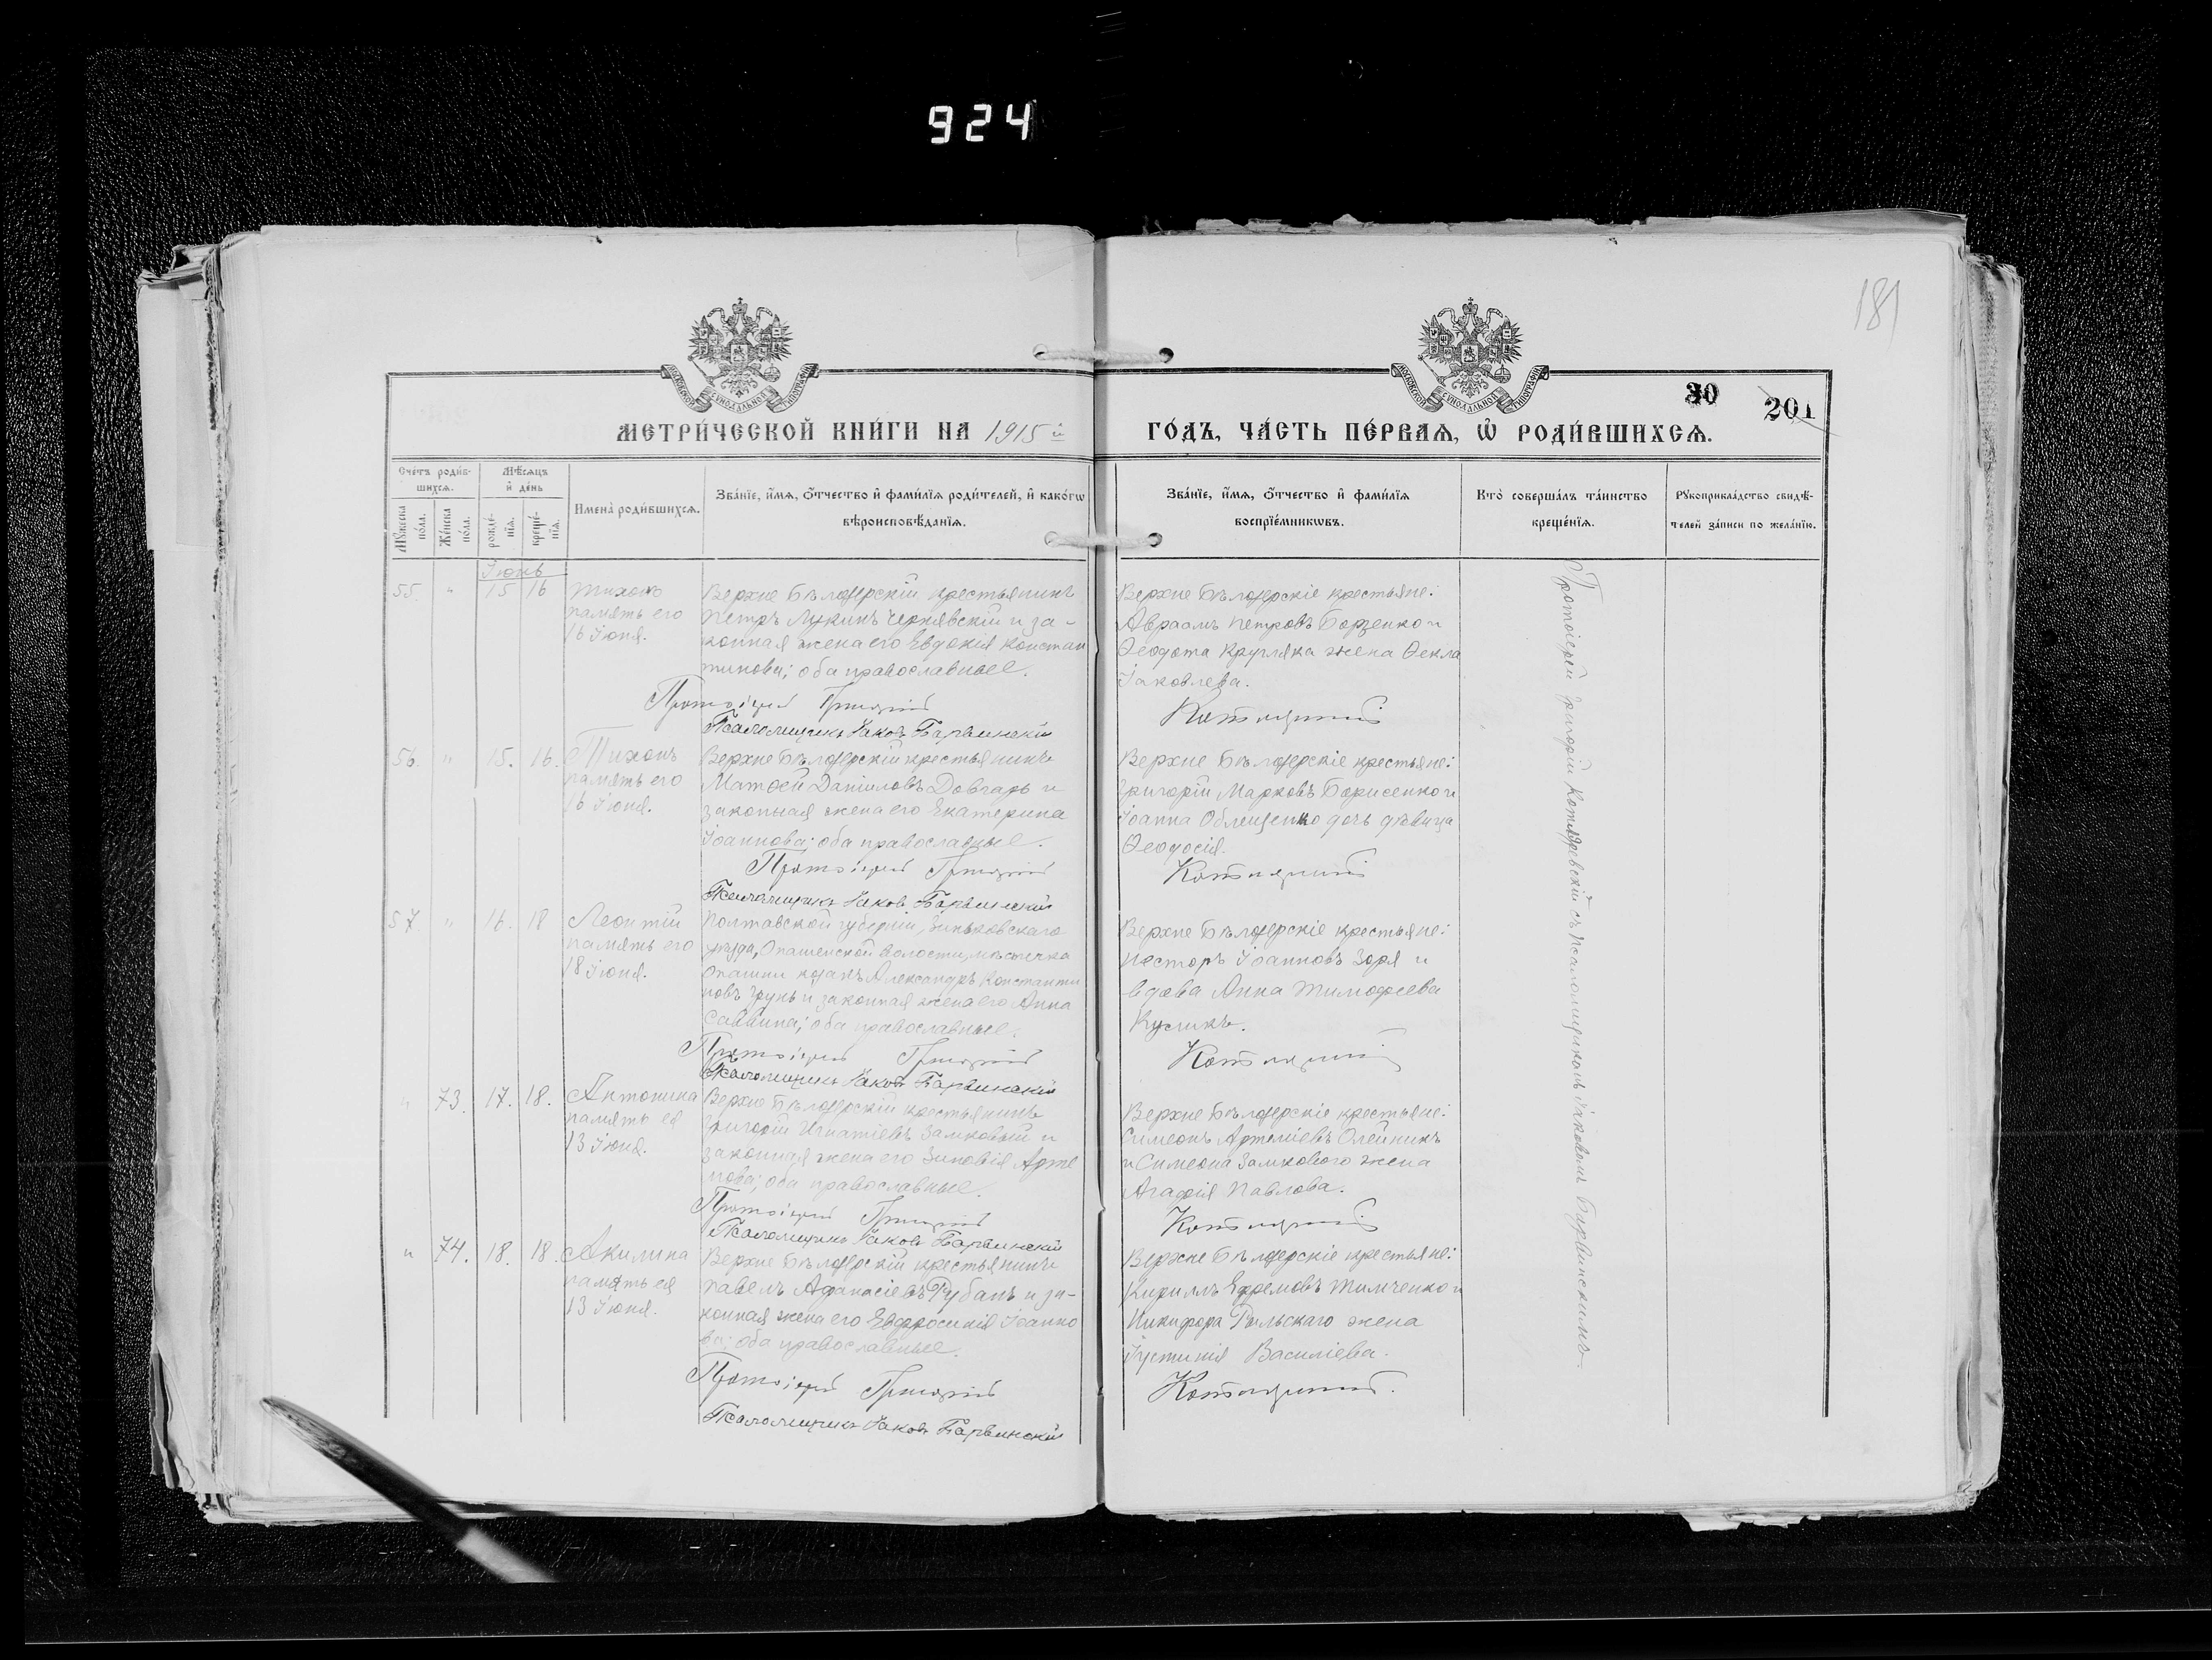 924
181
30
201
МОСКОВСКОЙ СУНОДАЛЬНОЙ ТИПОГРАФІИ
МОСКОВСКОЙ СУНОДАЛЬНОЙ ТИПОГРАФІИ
МЕТРИ́ЧЕСКОЙ КНИ́ГИ НА 1915 й
ГО́ДЪ, ЧА́СТЬ ПЕ́РВАѦ, Ѡ҆ РОДИ́ВШИХСѦ.
Сче́тъ роди́в-
шихсѧ.
Мꙋ́жеска по́ла.
Же́нска по́ла.
Мѣ́сѧцъ
и҆ де́нь
рожде́-
нїѧ.
креще́-
нїѧ.
Имена̀ роди́вшихсѧ.
Зва́нїе, и҆́мѧ, ѻ҆́тчество и҆ фами́лїѧ роди́телей, и҆ како́гѡ
вѣроисповѣ́данїѧ.
Зва́нїе, и҆́мѧ, ѻ҆́тчество и҆ фами́лїѧ
воспрїе́мникѡвъ.
Кто̀ соверша́лъ та́инство
креще́нїѧ.
Рꙋкоприкла́дство свидѣ́-
телей за́писи по жела́нїю.
Іюнь
55. " 15 16 Тихонъ
память его
16 Іюня.
Верхне Бѣлозерскій крестьянинъ
Петръ Лукинъ Чернявскій и за-
конная жена его Евдокія Констан
тинова; оба православные.
Протоіерей Григорій
Псаломщикъ Іаковъ Барвинскій
Верхне Бѣлозерскіе крестьяне:
Авраамъ Петровъ Борзенко и
Ѳеодота Кругляка жена Ѳекла
Іаковлева.
56. " 15. 16. Тихонъ
память его
16 Іюня.
Верхне Бѣлозерскій крестьянинъ
Матѳей Даніиловъ Довгаръ и
законная жена его Екатерина
Іоаннова; оба православные.
Протоіерей Григорій
Псаломщикъ Іаковъ Барвинскій
Верхне Бѣлозерскіе крестьяне:
Григорій Марковъ Борисенко и
Іоанна Облещенко дочь дѣвица
Ѳеодосія.
57. " 16. 18 Леонтій
память его
18 Іюня.
Полтавской губерніи, Зиньковскаго
уѣзда, Опашенской волости, мѣстечка
Опашни козакъ Александръ Константи
новъ Грунь и законная жена его Анна
Саввина; оба православные.
Протоіерей Григорій
Псаломщикъ Іаковъ Барвинскій
Верхне Бѣлозерскіе крестьяне:
Несторъ Іоанновъ Зоря и
вдова Анна Тимофеева
" 73. 17. 18. Антонина
память ея
13 Іюня.
Верхне Бѣлозерскій крестьянинъ
Григорій Игнатіевъ Замковый и
законная жена его Зиновія Арте
мова; оба православные.
Протоіерей Григорій
Псаломщикъ Іаковъ Барвинскій
Верхне Бѣлозерскіе крестьяне:
Симеонъ Артеміевъ Олейникъ
и Симеона Замкового жена
Агафія Павлова.
" 74. 18. 18. Акилина
память ея
13 Іюня.
Верхне Бѣлозерскій крестьянинъ
Павелъ Аѳанасіевъ Рубанъ и за-
конная жена его Евфросинія Іоанно
ва; оба православные.
Протоіерей Григорій
Псаломщикъ Іаковъ Барвинскій
Верхне Бѣлозерскіе крестьяне:
Кириллъ Ефремовъ Тимченко и
Никифора Рыльскаго жена
Іустинія Василіева.
Протоіерей Григорій съ псаломщикомъ Іаковомъ Барвинскимъ